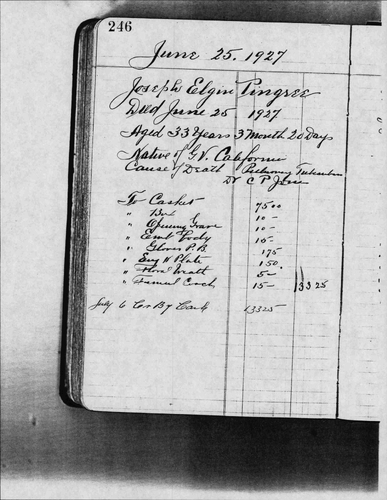 246
June 25. 1927
Joseph Elgin Pingree
Died June 25 1927
Aged 33 Years 3 Month 20 Days
Native of G.V. California
Cause of Death Pulmonary Tuberculosis
Dr C P Jones
To Casket 75 00
" Box 10 -
" Opening Grave 10 -
" Emb Body 15 -
" Gloves P.B. 1 75
" Eng N Plate 1 50
" Floral Wreath 5 -
" Funeral Coach 15 - 133 25
July 6 Cr By Cash 133 25